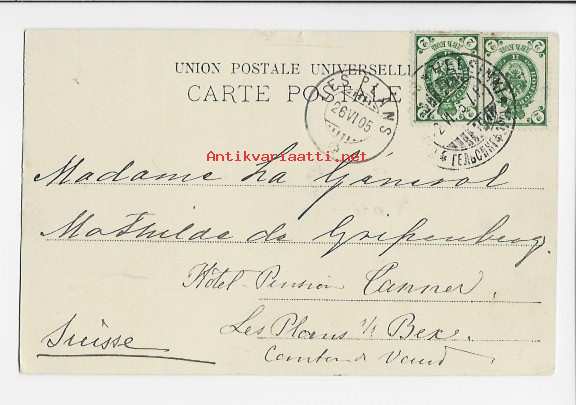 UNION POSTALE UNIVERSELLE
CARTE POSTALE
LES PLANS
26 VI 05
HELSINKI
ГЕЛЬСИНГФ
2 2 2 2
Antikvariaatti.net
Madame La Général
Mathilda de Gripenberg.
Hôtel-Pension Tanner,
Les Plans s/ Bex.
Suisse
Canton de Vaud